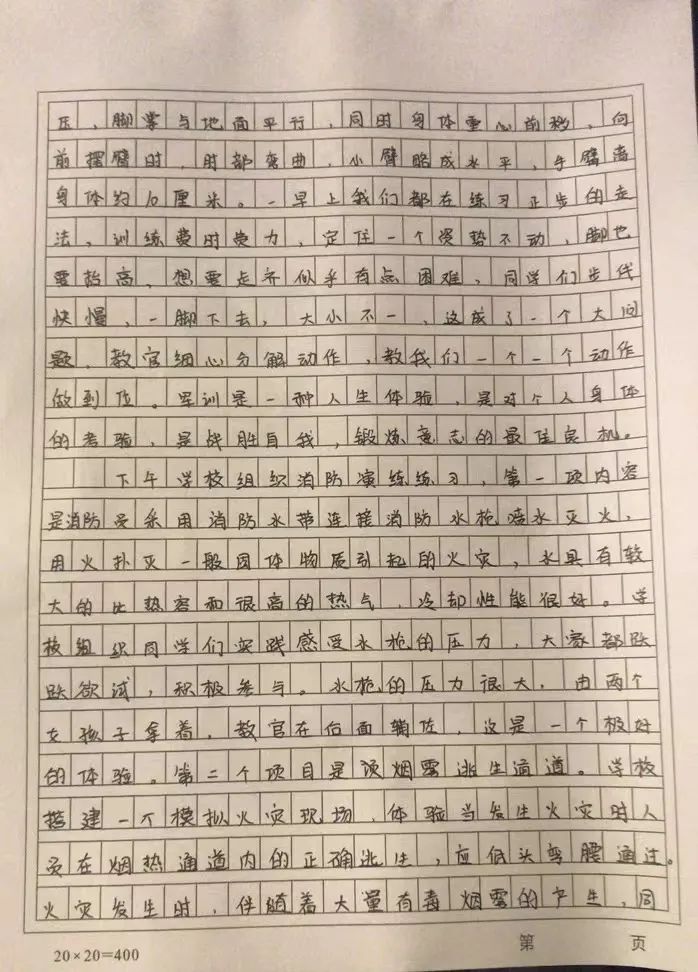 压，脚掌与地面平行，同时身体重心前移，向
前摆臂时，肘部弯曲，小臂略成水平，手臂离
身体约10厘米。一早上我们都在练习正步的走
法，训练费时费力，定住一个姿势不动，脚也
要抬高，想要走齐似乎有点困难，同学们步伐
快慢，一脚下去，大小不一，这成了一个大问
题，教官细心分解动作，教我们一个一个动作
做到位。军训是一种人生体验，是对个人身体
的考验，是战胜自我，锻炼意志的最佳良机。
下午学校组织消防演练练习，第一项内容
是消防员采用消防水带连接消防水枪喷水灭火，
用火扑灭一般固体物质引起的火灾，水具有较
大的比热容和很高的热气，冷却性能很好。学
校组织同学们实践感受水枪的压力，大家都跃
跃欲试，积极参与。水枪的压力很大，由两个
女孩子拿着，教官在后面辅佐，这是一个极好
的体验。第二个项目是顶烟雾逃生通道。学校
搭建一个模拟火灾现场，体验当发生火灾时人
员在烟热通道内的正确逃生，应低头弯腰通过。
火灾发生时，伴随着大量有毒烟雾的产生，同
20×20=400
第 页